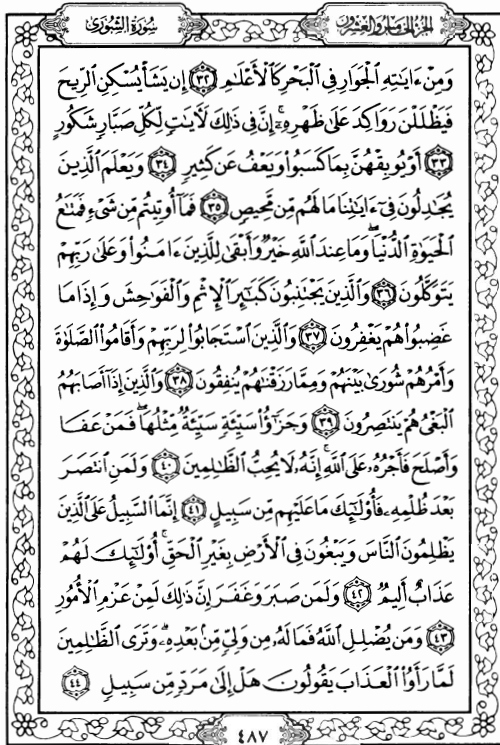 الجزء الخامس والعشرون
سورة الشورى
وَمِنْ ءَايَٰتِهِ ٱلْجَوَارِ فِى ٱلْبَحْرِ كَٱلْأَعْلَٰمِ ٣٢ إِن يَشَأْ يُسْكِنِ ٱلرِّيحَ
فَيَظْلَلْنَ رَوَاكِدَ عَلَىٰ ظَهْرِهِۦٓ ۚ إِنَّ فِى ذَٰلِكَ لَءَايَٰتٍ لِّكُلِّ صَبَّارٍ شَكُورٍ
٣٣ أَوْ يُوبِقْهُنَّ بِمَا كَسَبُوا۟ وَيَعْفُ عَن كَثِيرٍ ٣٤ وَيَعْلَمَ ٱلَّذِينَ
يُجَٰدِلُونَ فِىٓ ءَايَٰتِنَا مَا لَهُم مِّن مَّحِيصٍ ٣٥ فَمَآ أُوتِيتُم مِّن شَىْءٍ فَمَتَٰعُ
ٱلْحَيَوٰةِ ٱلدُّنْيَا ۖ وَمَا عِندَ ٱللَّهِ خَيْرٌ وَأَبْقَىٰ لِلَّذِينَ ءَامَنُوا۟ وَعَلَىٰ رَبِّهِمْ
يَتَوَكَّلُونَ ٣٦ وَٱلَّذِينَ يَجْتَنِبُونَ كَبَٰٓئِرَ ٱلْإِثْمِ وَٱلْفَوَٰحِشَ وَإِذَا مَا
غَضِبُوا۟ هُمْ يَغْفِرُونَ ٣٧ وَٱلَّذِينَ ٱسْتَجَابُوا۟ لِرَبِّهِمْ وَأَقَامُوا۟ ٱلصَّلَوٰةَ
وَأَمْرُهُمْ شُورَىٰ بَيْنَهُمْ وَمِمَّا رَزَقْنَٰهُمْ يُنفِقُونَ ٣٨ وَٱلَّذِينَ إِذَآ أَصَابَهُمُ
ٱلْبَغْىُ هُمْ يَنتَصِرُونَ ٣٩ وَجَزَٰٓؤُا۟ سَيِّئَةٍ سَيِّئَةٌ مِّثْلُهَا ۖ فَمَنْ عَفَا
وَأَصْلَحَ فَأَجْرُهُۥ عَلَى ٱللَّهِ ۚ إِنَّهُۥ لَا يُحِبُّ ٱلظَّٰلِمِينَ ٤٠ وَلَمَنِ ٱنتَصَرَ
بَعْدَ ظُلْمِهِۦ فَأُو۟لَٰٓئِكَ مَا عَلَيْهِم مِّن سَبِيلٍ ٤١ إِنَّمَا ٱلسَّبِيلُ عَلَى ٱلَّذِينَ
يَظْلِمُونَ ٱلنَّاسَ وَيَبْغُونَ فِى ٱلْأَرْضِ بِغَيْرِ ٱلْحَقِّ ۚ أُو۟لَٰٓئِكَ لَهُمْ
عَذَابٌ أَلِيمٌ ٤٢ وَلَمَن صَبَرَ وَغَفَرَ إِنَّ ذَٰلِكَ لَمِنْ عَزْمِ ٱلْأُمُورِ
٤٣ وَمَن يُضْلِلِ ٱللَّهُ فَمَا لَهُۥ مِن وَلِىٍّ مِّنۢ بَعْدِهِۦ ۗ وَتَرَى ٱلظَّٰلِمِينَ
لَمَّا رَأَوُا۟ ٱلْعَذَابَ يَقُولُونَ هَلْ إِلَىٰ مَرَدٍّ مِّن سَبِيلٍ ٤٤
٤٨٧